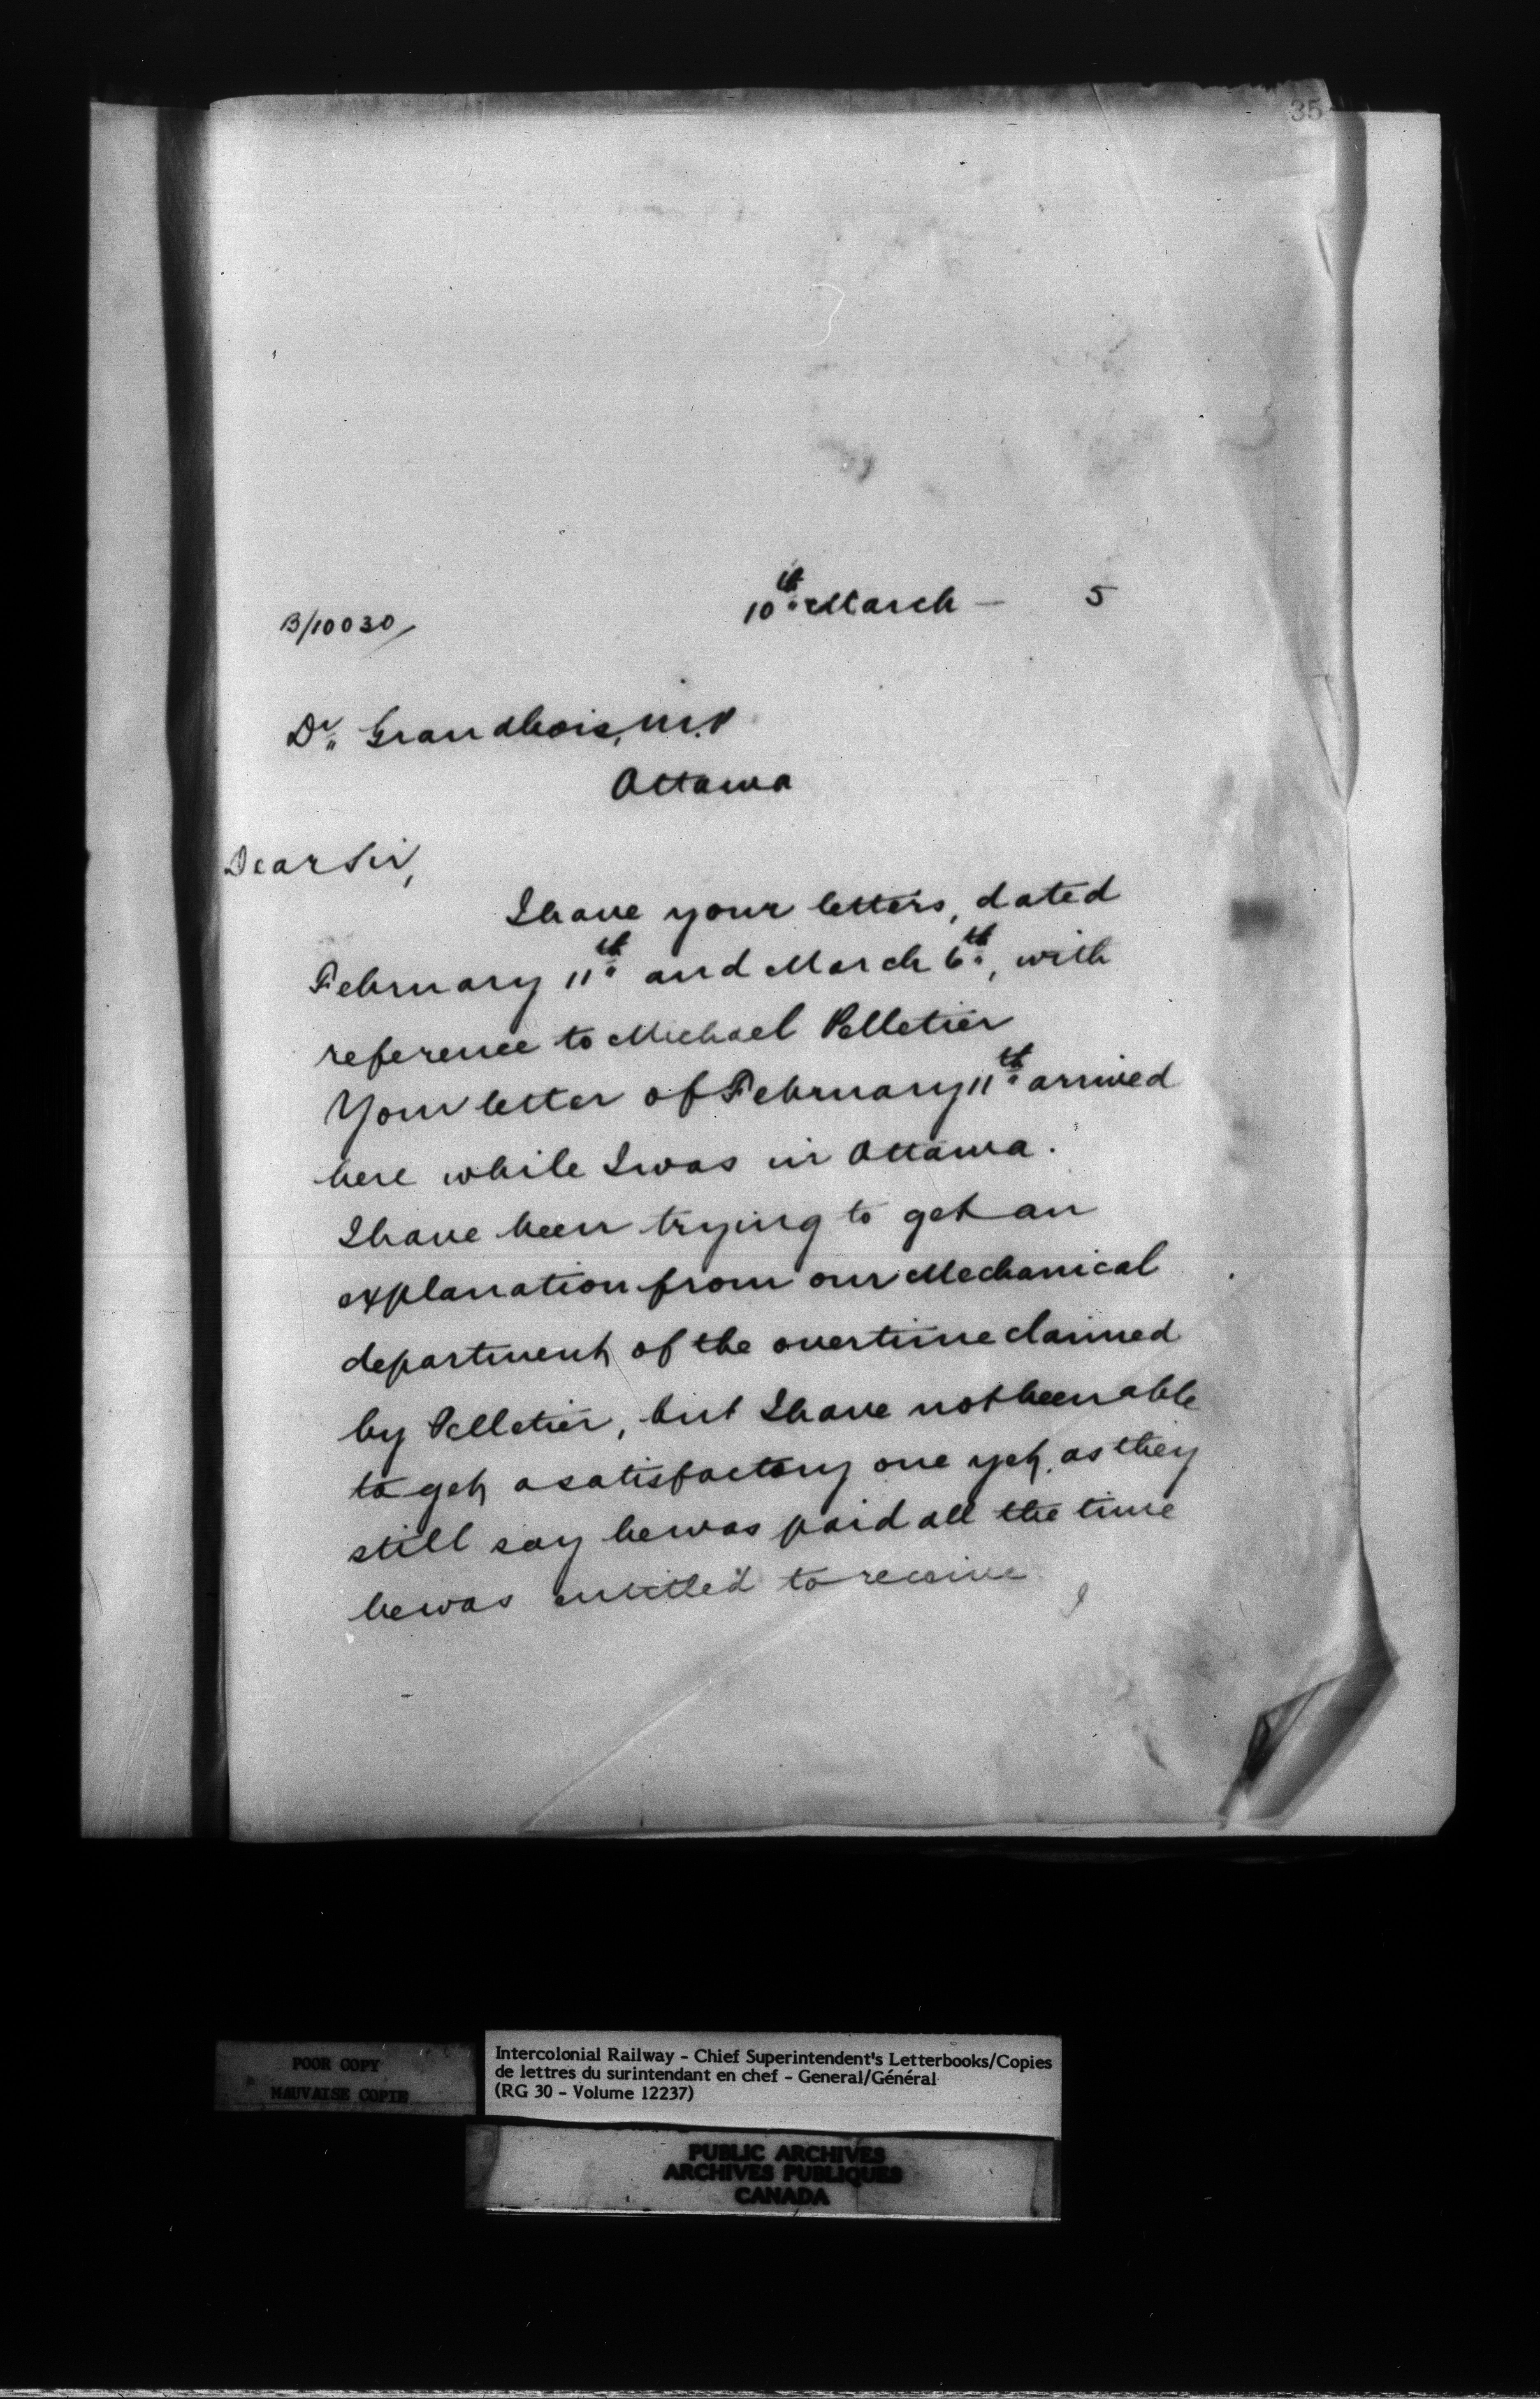 35
10th March — 5
B/10030/
Dr. Grandbois, M.P
Ottawa
Dear Sir,
I have your letters, dated
February 11th and March 6th, with
reference to Michael Pelletier
Your letter of February 11th arrived
here while I was in Ottawa.
I have been trying to get an
explanation from our Mechanical
department of the overtime claimed
by Pelletier, but I have not been able
to get a satisfactory one yet, as they
still say he was paid all the time
he was entitled to receive
I
POOR COPY
MAUVAISE COPIE
Intercolonial Railway - Chief Superintendent's Letterbooks/Copies
de lettres du surintendant en chef - General/Général
(RG 30 - Volume 12237)
PUBLIC ARCHIVES
ARCHIVES PUBLIQUES
CANADA